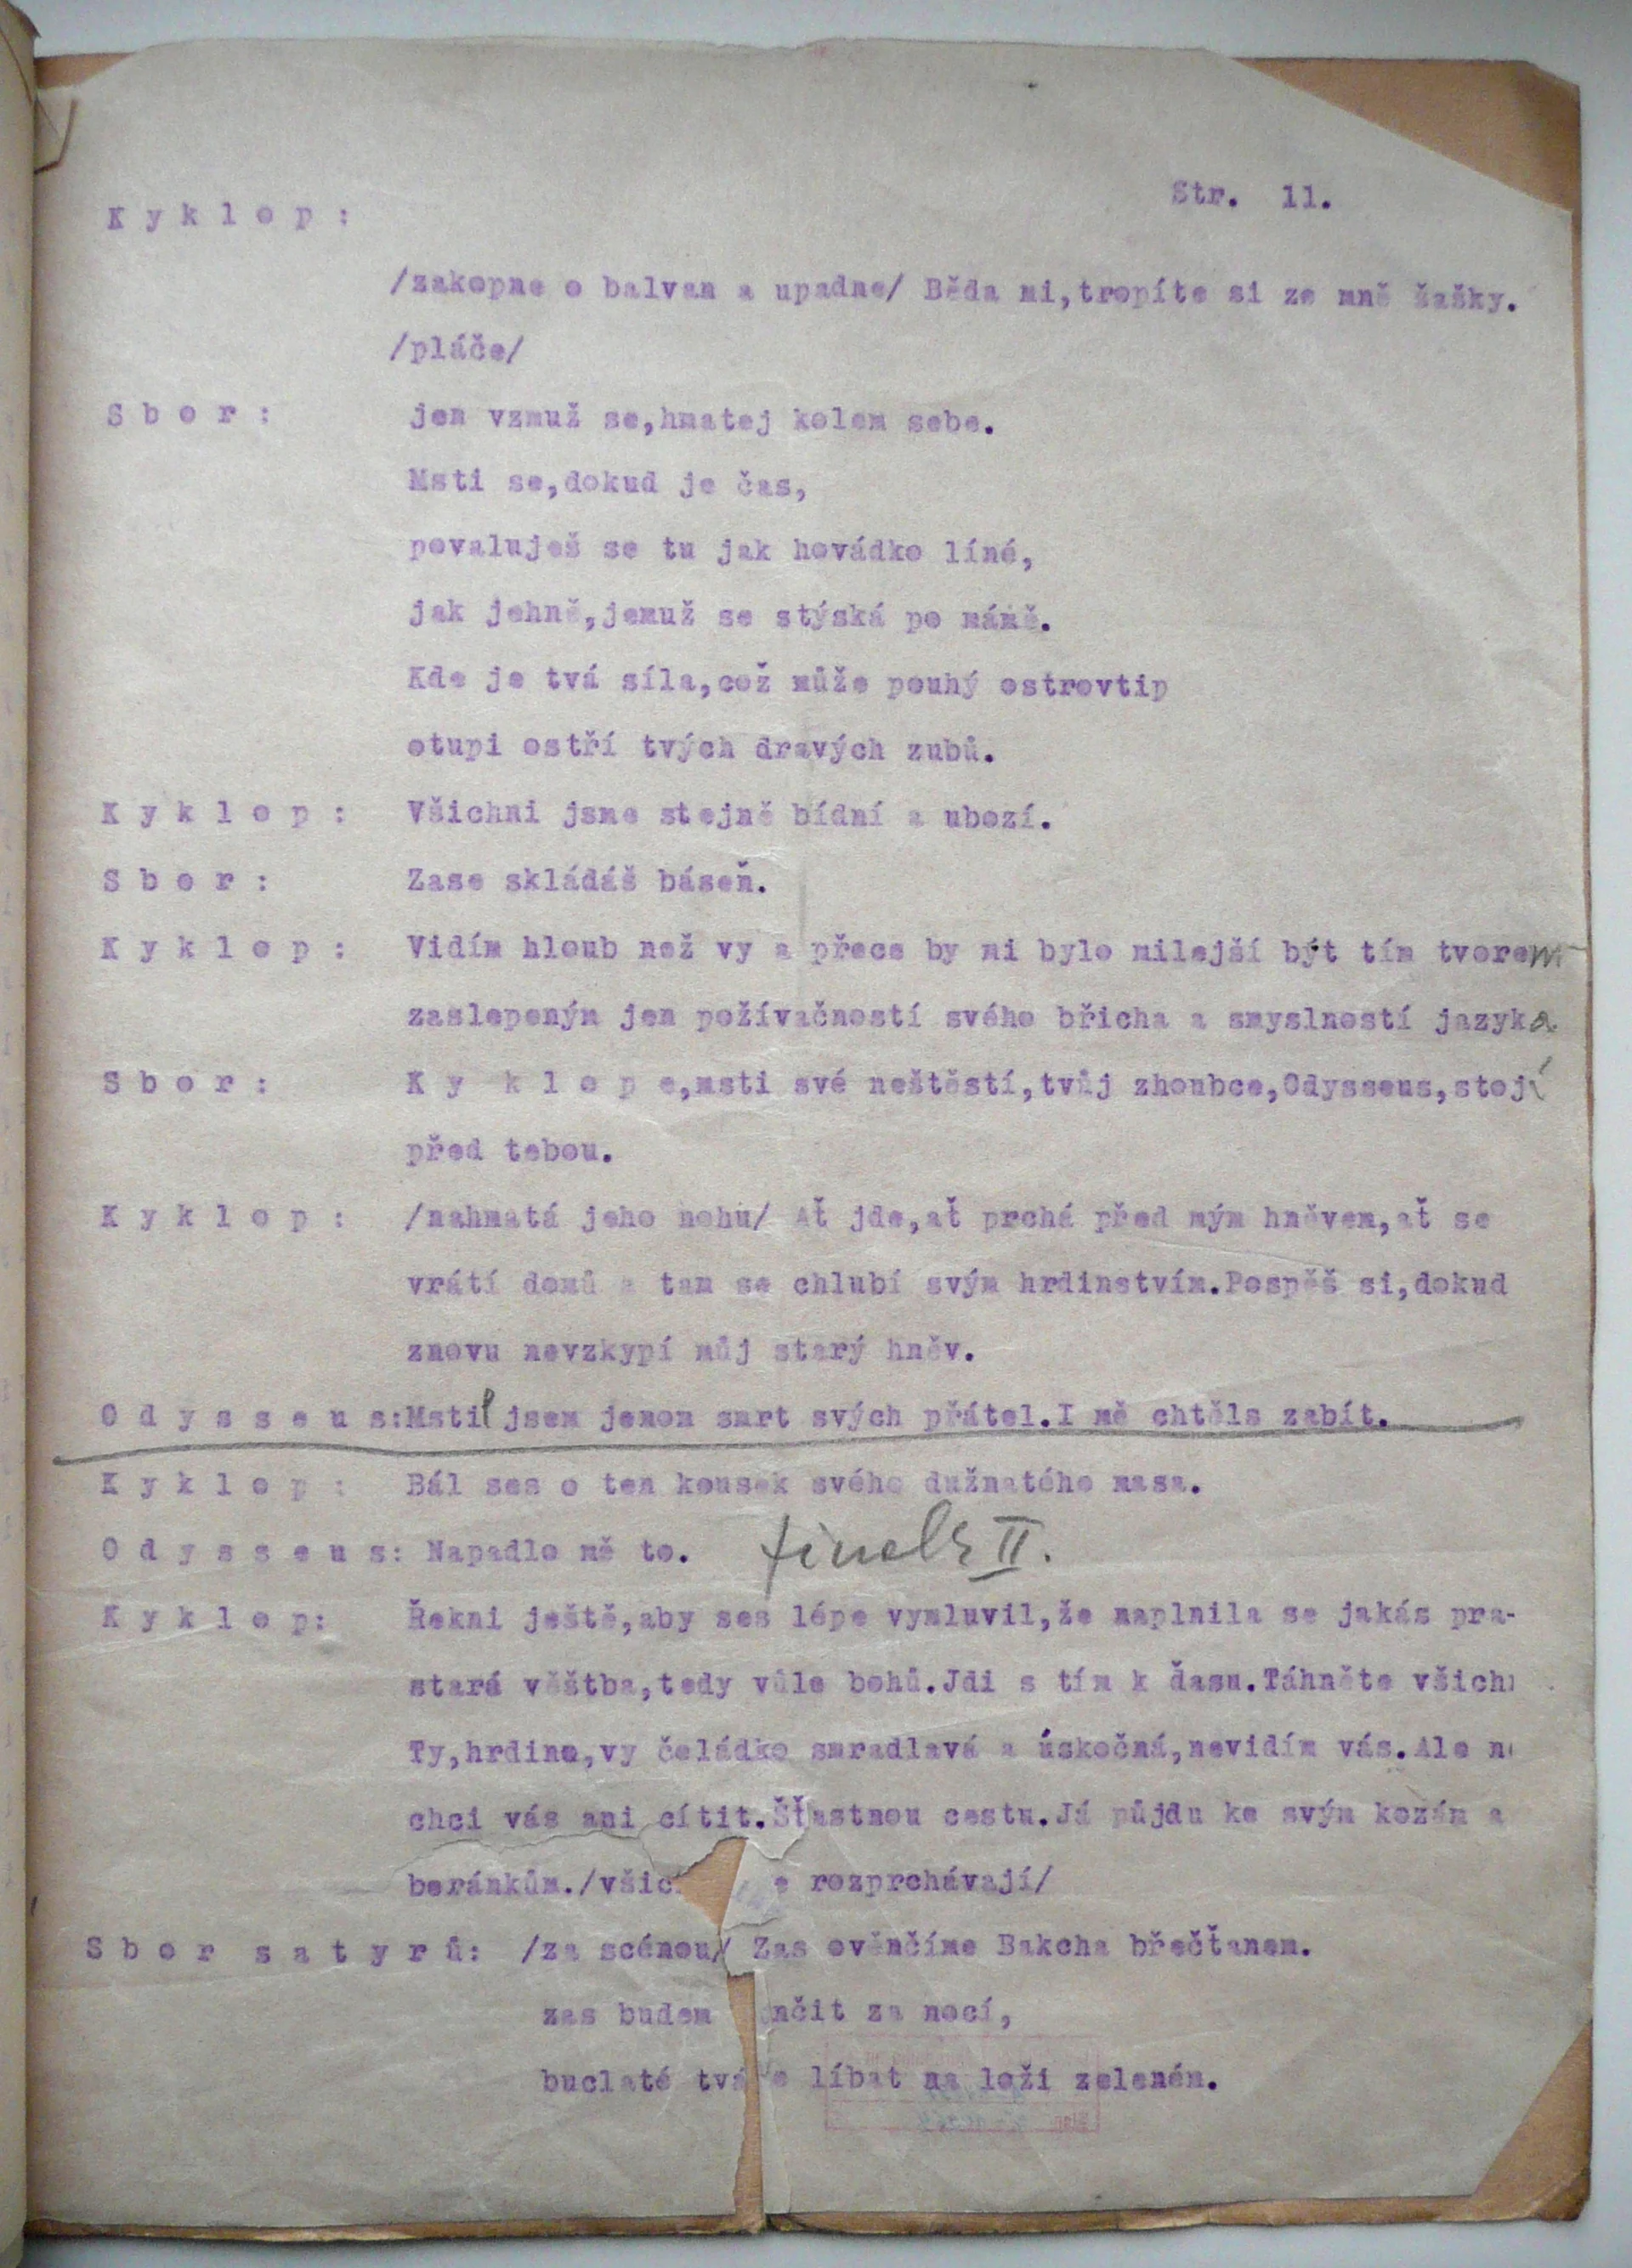 Str. 11.
K y k l o p :
/zakopne o balvan a upadne/ Běda mi,tropíte si ze mně šašky.
/pláče/
S b o r : jen vzmuž se,hmatej kolem sebe.
Msti se,dokud je čas,
povaluješ se tu jak hovádko líné,
jak jehně,jemuž se stýská po mámě.
Kde je tvá síla,což může pouhý ostrovtip
otupi ostří tvých dravých zubů.
K y k l o p : Všichni jsme stejně bídní a ubozí.
S b o r : Zase skládáš báseň.
K y k l o p : Vidím hloub než vy a přece by mi bylo milejší být tím tvorem
zaslepeným jen požívačností svého břicha a smyslností jazyka
S b o r : K y k l o p e,msti své neštěstí,tvůj zhoubce,Odysseus,stojí
před tebou.
K y k l o p : /nahmatá jeho nohu/ Ať jde,ať prchá před mým hněvem,ať se
vrátí domů a tam se chlubí svým hrdinstvím.Pospěš si,dokud
znovu nevzkypí můj starý hněv.
O d y s s e u s:Mstil jsem jenom smrt svých přátel.I mě chtěls zabít.
K y k l o p : Bál ses o ten kousek svého dužnatého masa.
O d y s s e u s: Napadlo mě to. finale II.
K y k l o p: Řekni ještě,aby ses lépe vymluvil,že naplnila se jakás pra-
stará věštba,tedy vůle bohů.Jdi s tím k ďasu.Táhněte všichn
Ty,hrdino,vy čeládko smradlavá a úskočná,nevidím vás.Ale ne
chci vás ani cítit.Šťastnou cestu.Já půjdu ke svým kozám a
beránkům./všic e rozprchávají/
S b o r s a t y r ů: /za scénou/ Zas ověnčíme Bakcha břečťanem.
zas budem nčit za nocí,
buclaté tváře líbat na loži zeleném.